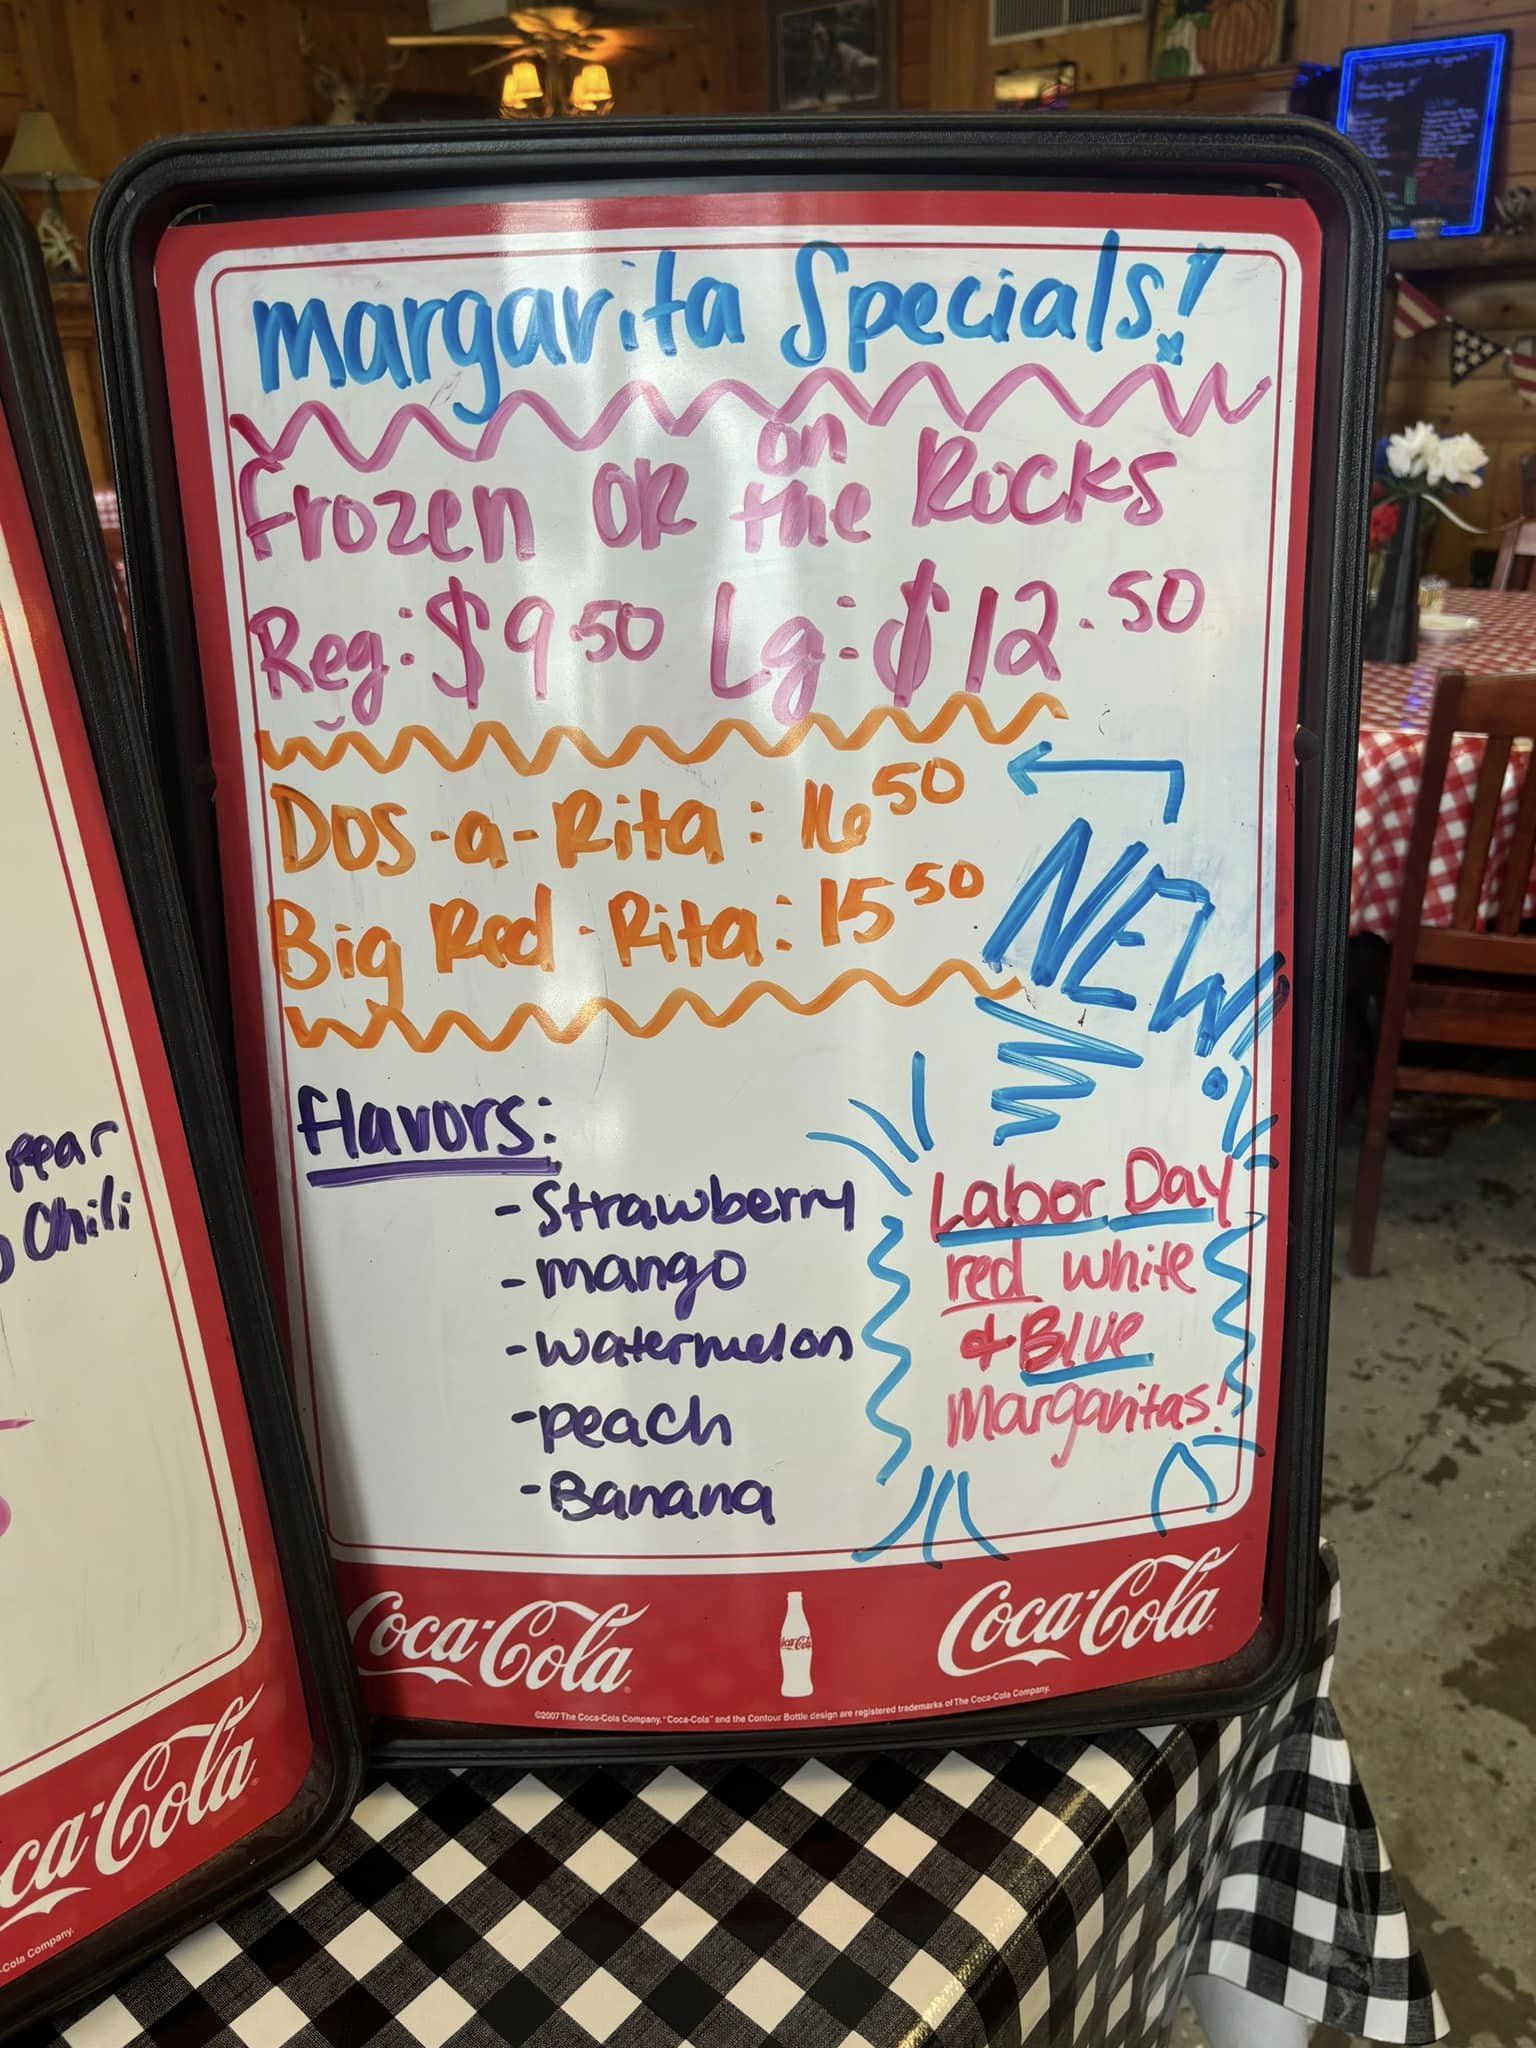 margarita Specials!
frozen OR on the Rocks
Reg: $9 50 Lg: $12.50
DOS-a-Rita: 16 50
Big Red-Rita: 15 50
NEW!
flavors:
- Strawberry
- mango
- watermelon
- peach
- Banana
Labor Day
red white
& BLUE
margaritas!
Coca-Cola
Coca-Cola
Coca-Cola
©2007 The Coca-Cola Company. "Coca-Cola" and the Contour Bottle design are registered trademarks of The Coca-Cola Company.
Chili
ca-Cola
-Cola Company.